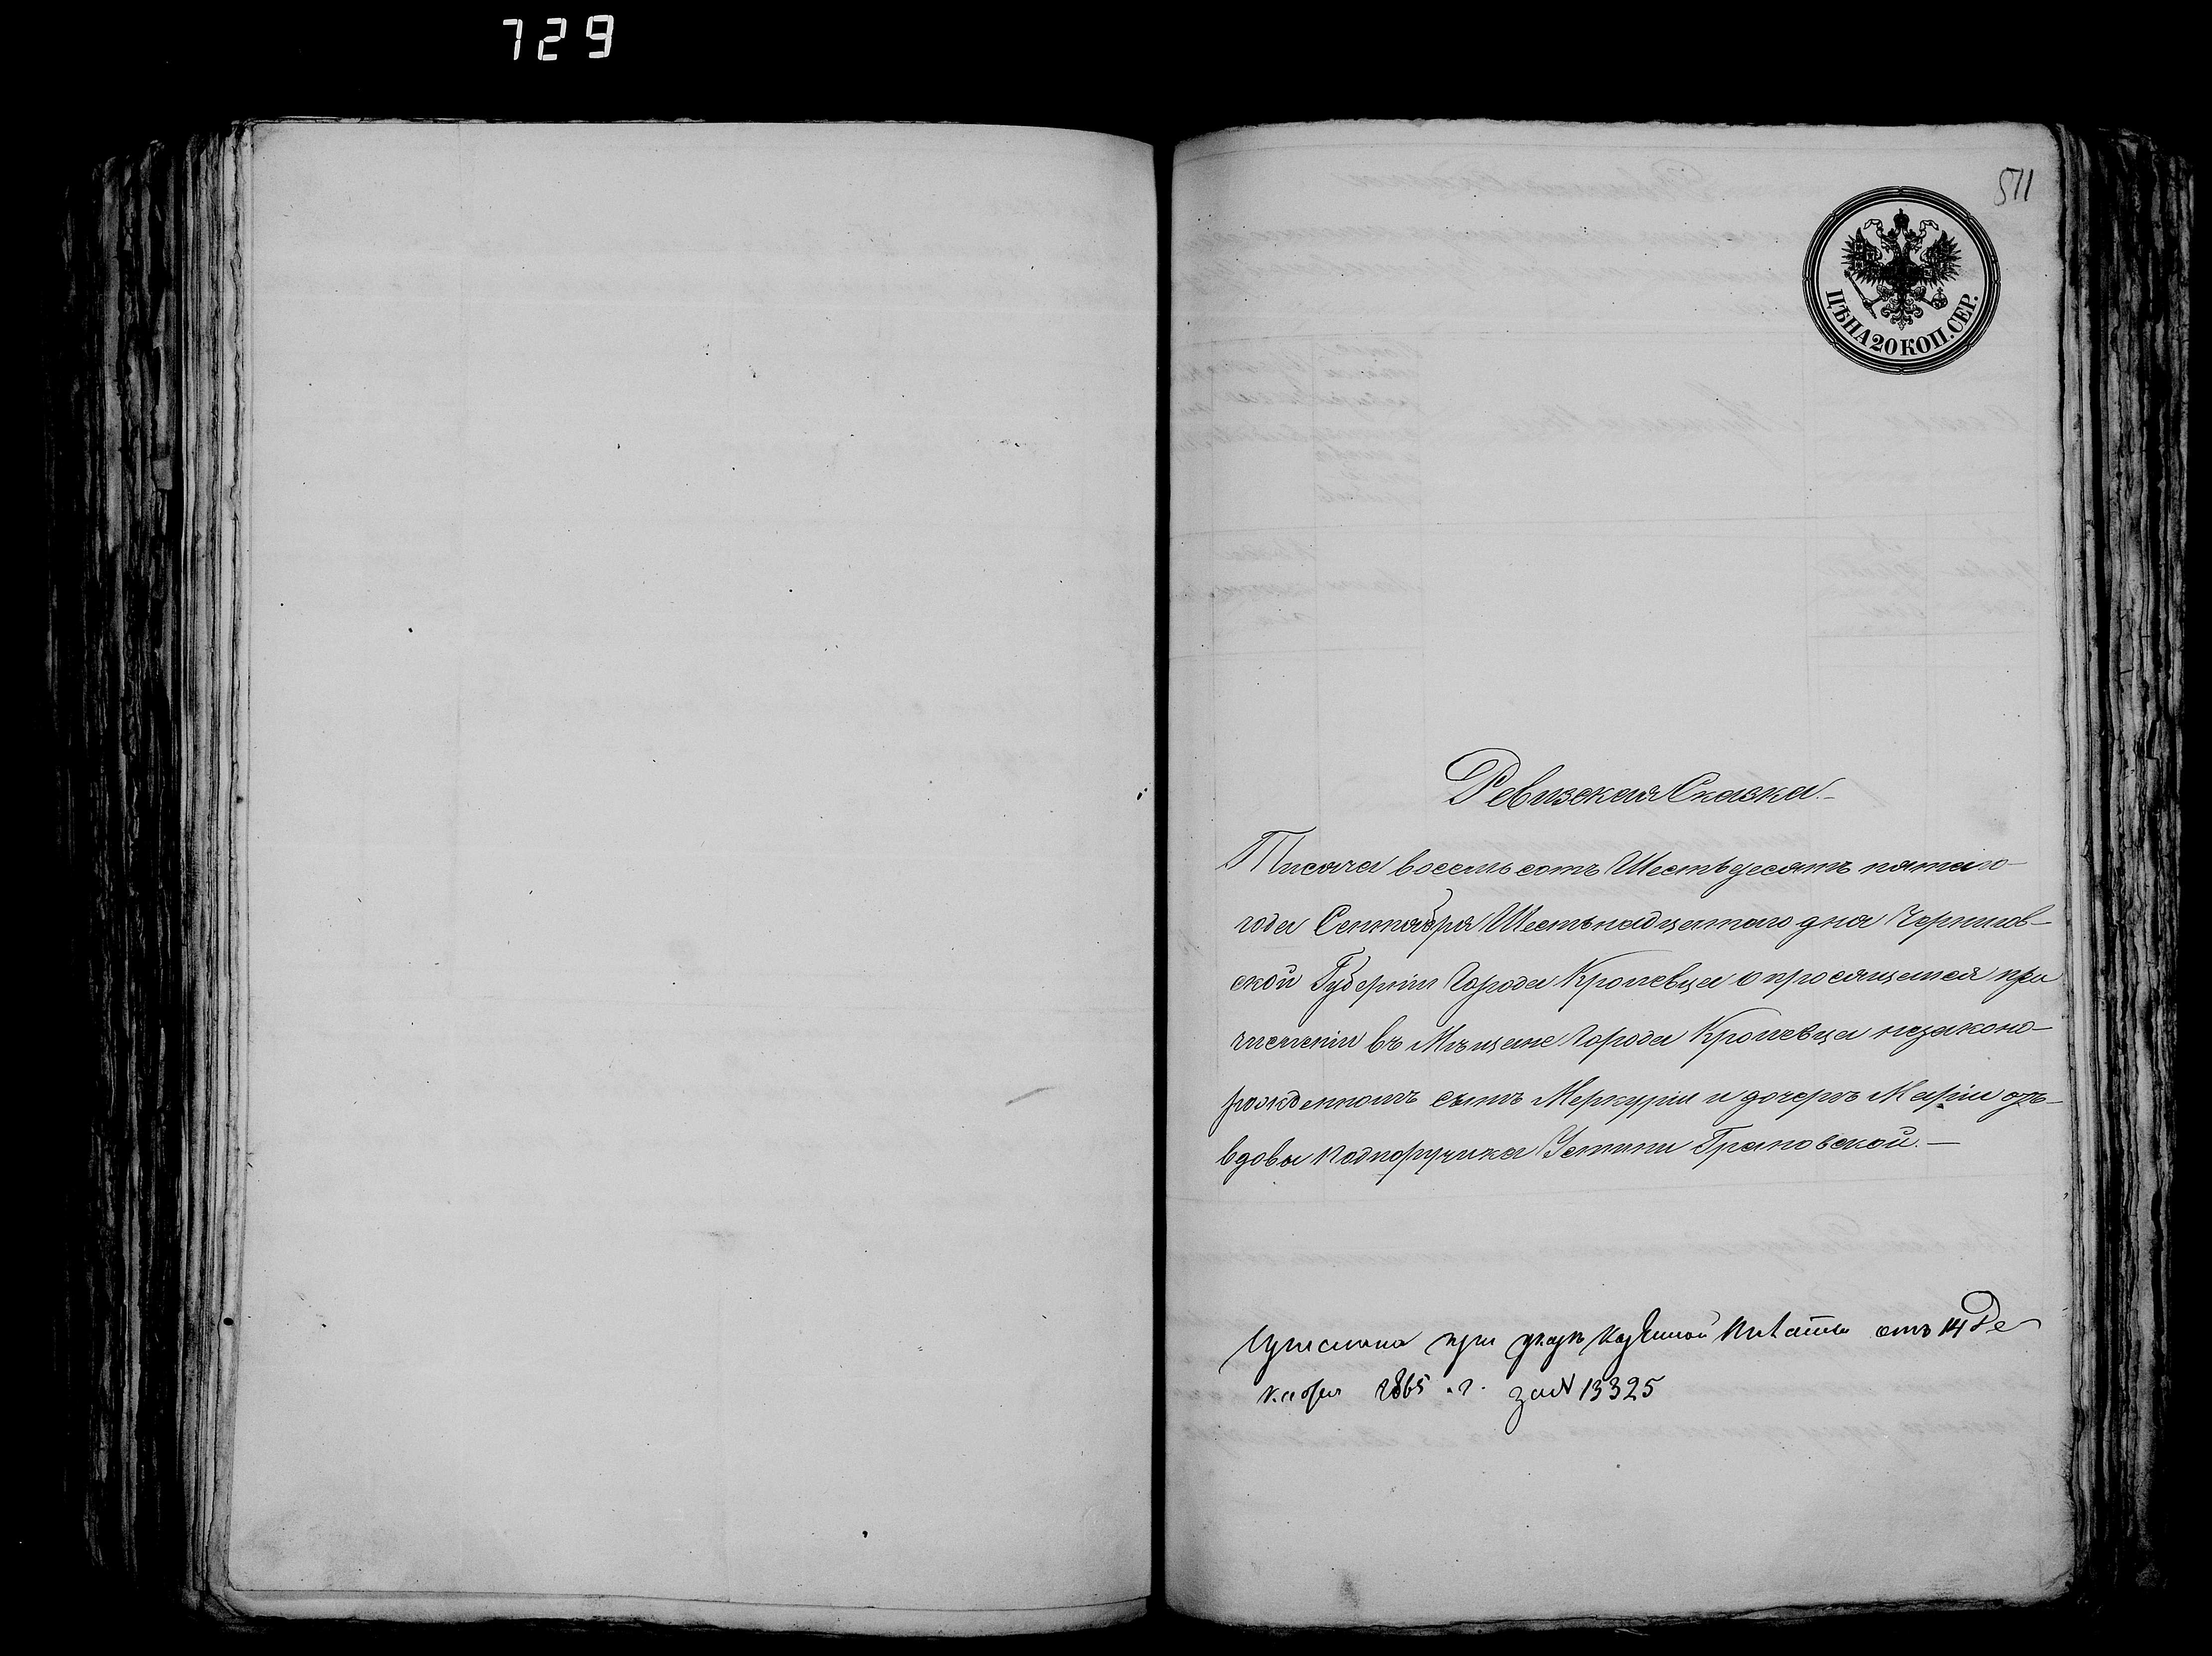 729
511
ЦѢНА 20 КОП. СЕР.
Ревизская Сказка.
Тисяча восемь сотъ Шестьдесятъ пятаго
года Сентября Шестьнадцатого дня Чернигов-
ской Губерніи Города Кролевца о просящемся при
численіи въ Мѣщане Города Кролевца незаконо-
рожденномъ сынѣ Меркуріи и дочерѣ Маріи отъ
вдовы Подпоручика Устини Грановской. —
при указѣ Казенной Палаты отъ 14 Де
кабря 1865 г. за N 13325